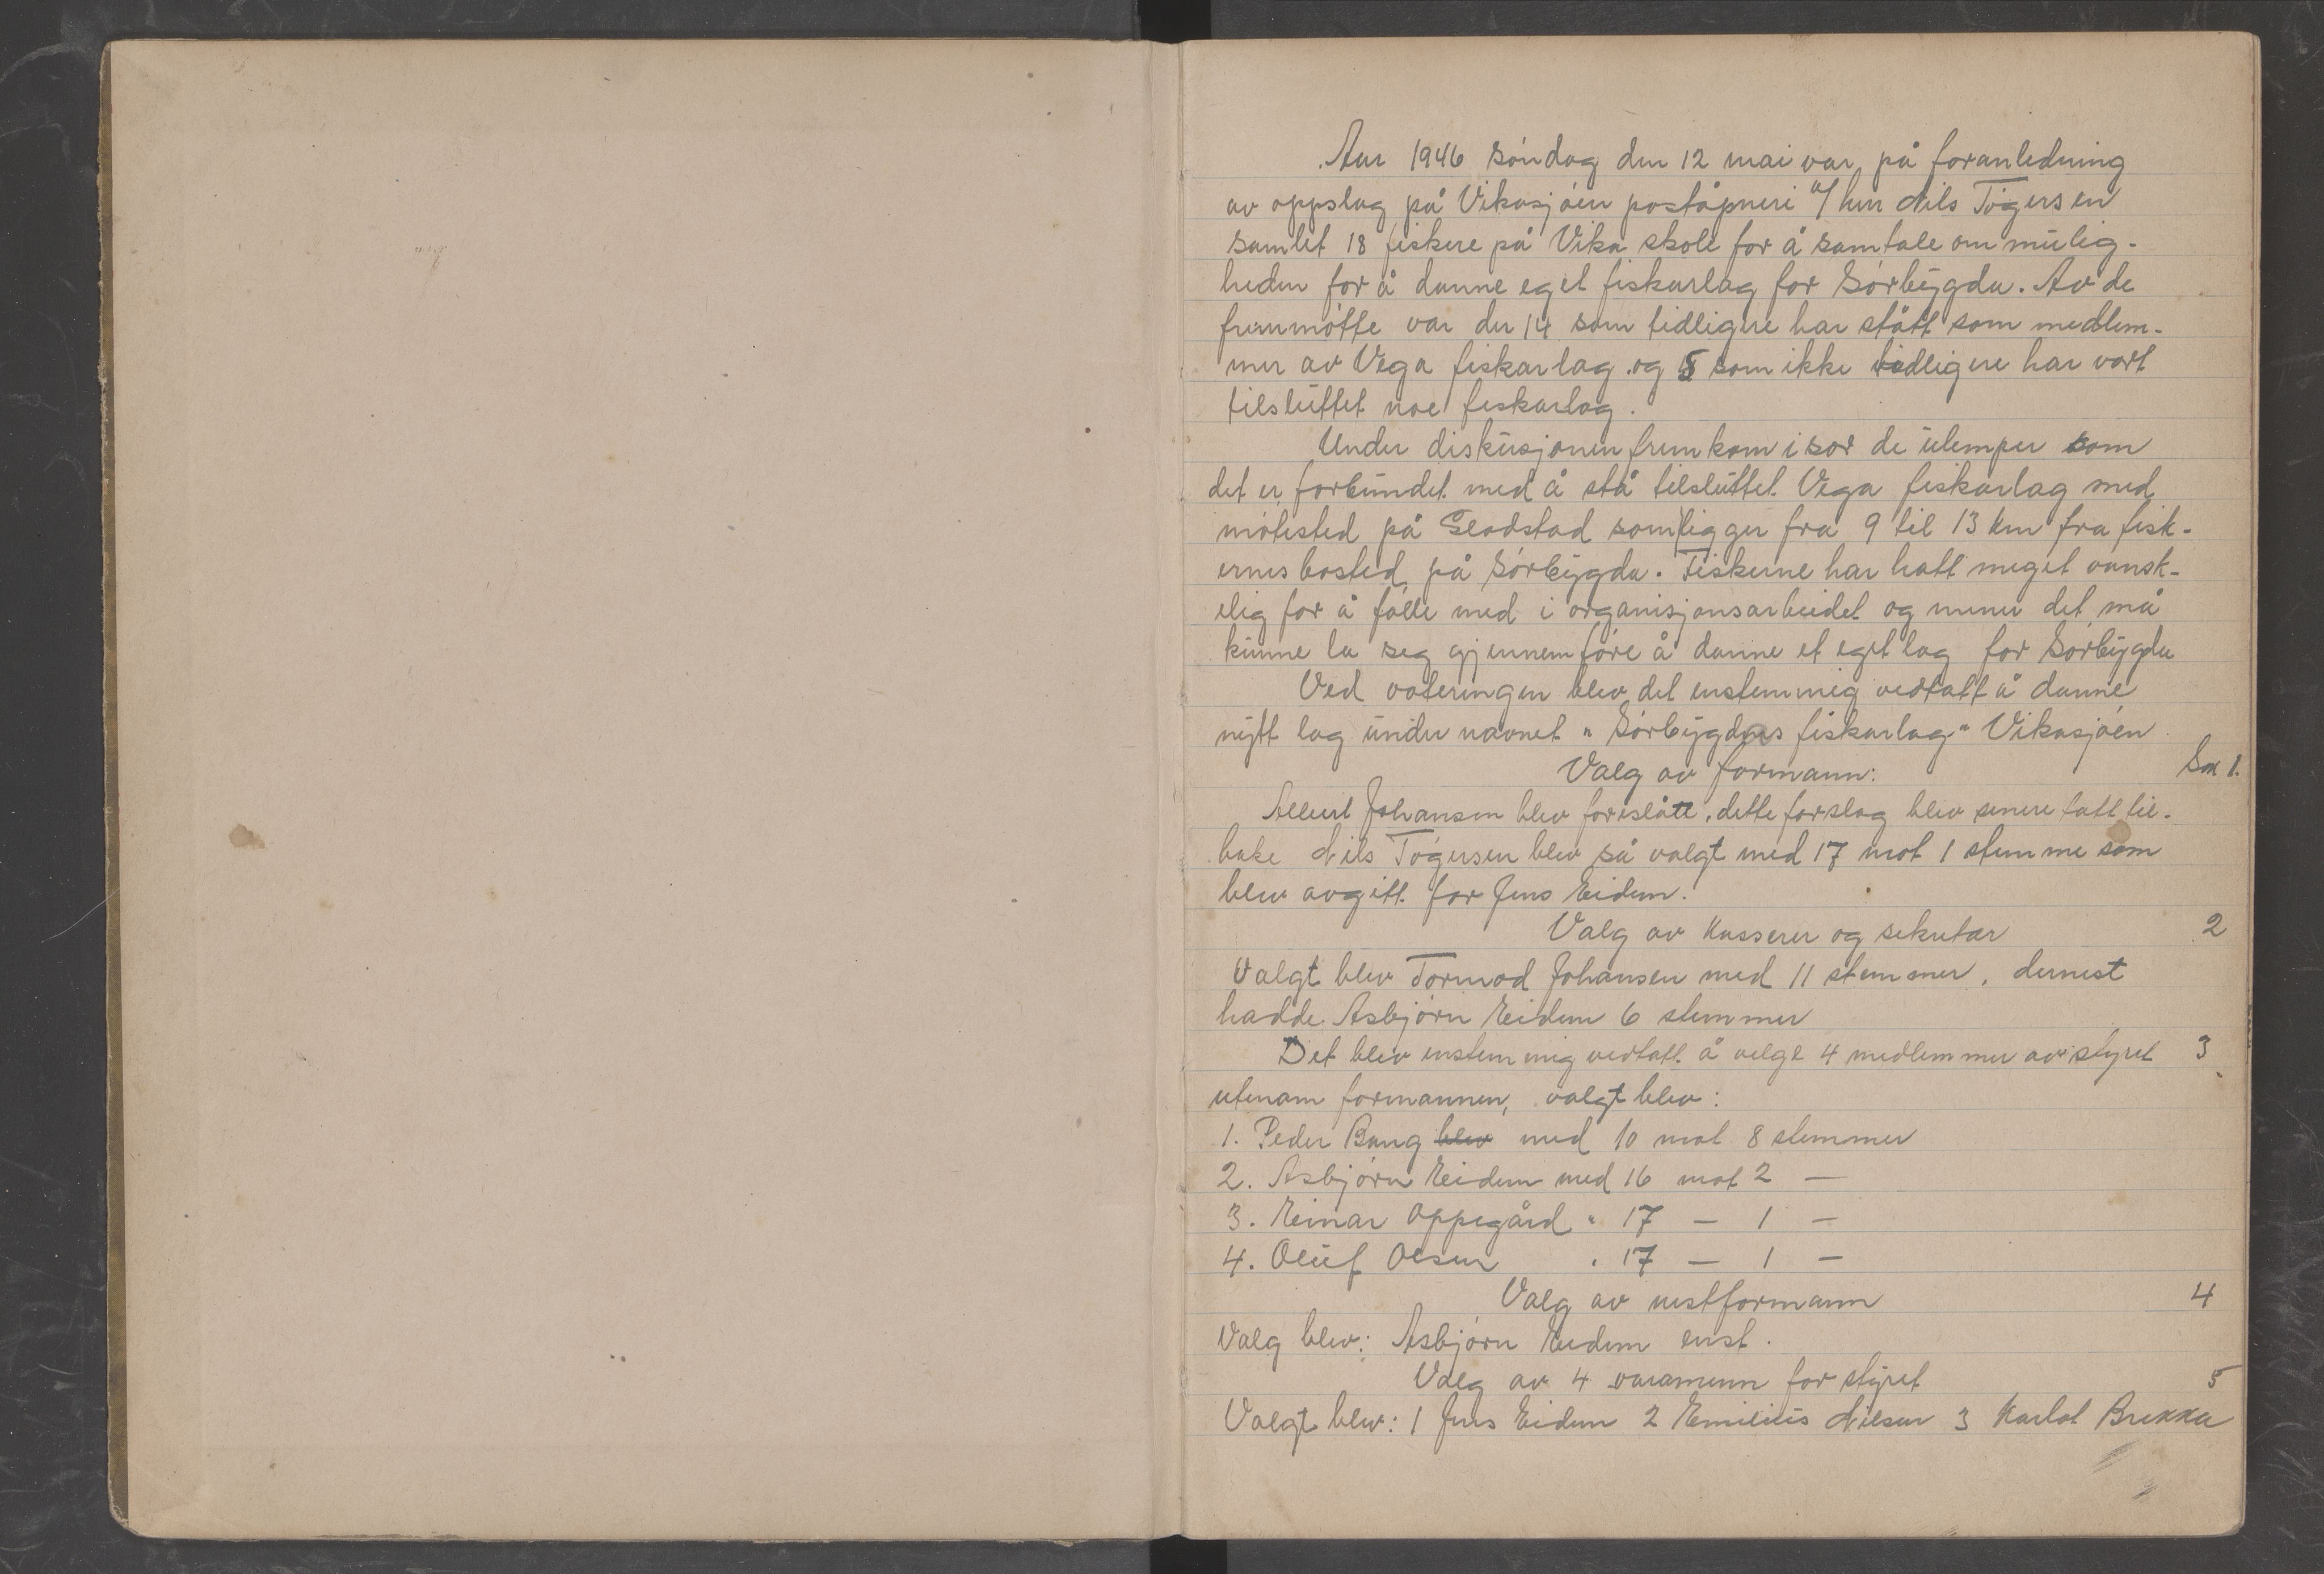 Aar 1946 søndag den 12 mai var på foranledning
av oppslag på Vikasjøen poståpneri a/ herr Nils Tøgersen
samlet 18 fiskere på Vika skole for å samtale om mulig-
heden for å danne eget fiskarlag for Sørbygda. Av de
fremmøtte var der 14 som tidligere har stått som medlem-
mer av Vega fiskarlag og 5 som ikke tidligere har vørt
tilsluttet noe fiskarlag.
Under diskusjonen fremkom i sør de ulemper som
det er forbundet med å stå tilsluttet Vega fiskarlag med
møtested på Gladstad som ligger fra 9 til 13 km fra fisk-
ernes bosted på Sørbygda. Fiskerne har hatt meget vansk-
elig for å følle med i organisjonsarbeidet og mener det må
kunne la seg gjennemføre å danne et eget lag for Sørbygda
Ved voteringen blev det enstemmig vedtatt å danne
nytt lag under navnet " Sørbygdens fiskarlag " Vikasjøen
Valg av formann: Sak 1.
Albert Johansen blev foreslått, dette forslag blev senere tatt til-
bake Nils Tøgersen blev så valgt med 17 mot 1 stemme som
blev avgitt for Jens Eidem.
Valg av Kasserer og sekretær 2
Valgt blev Tormod Johansen med 11 stemmer, dernest
hadde Asbjørn Eidem 6 stemmer
Det blev enstemmig vedtatt å velge 4 medlemmer av styret 3
utenam formannen, valgt blev:
1. Peder Bang blev med 10 mot 8 stemmer
2. Asbjørn Eidem med 16 mot 2 —
3. Einar Oppegård " 17 — 1 —
4. Oluf Olsen " 17 — 1 —
Valg av nestformann 4
Valg blev: Asbjørn Eidem enst.
Valg av 4 varamenn for styret 5
Valgt blev: 1 Jens Eidem 2 Emilius Nilsen 3 Karlot Brekka